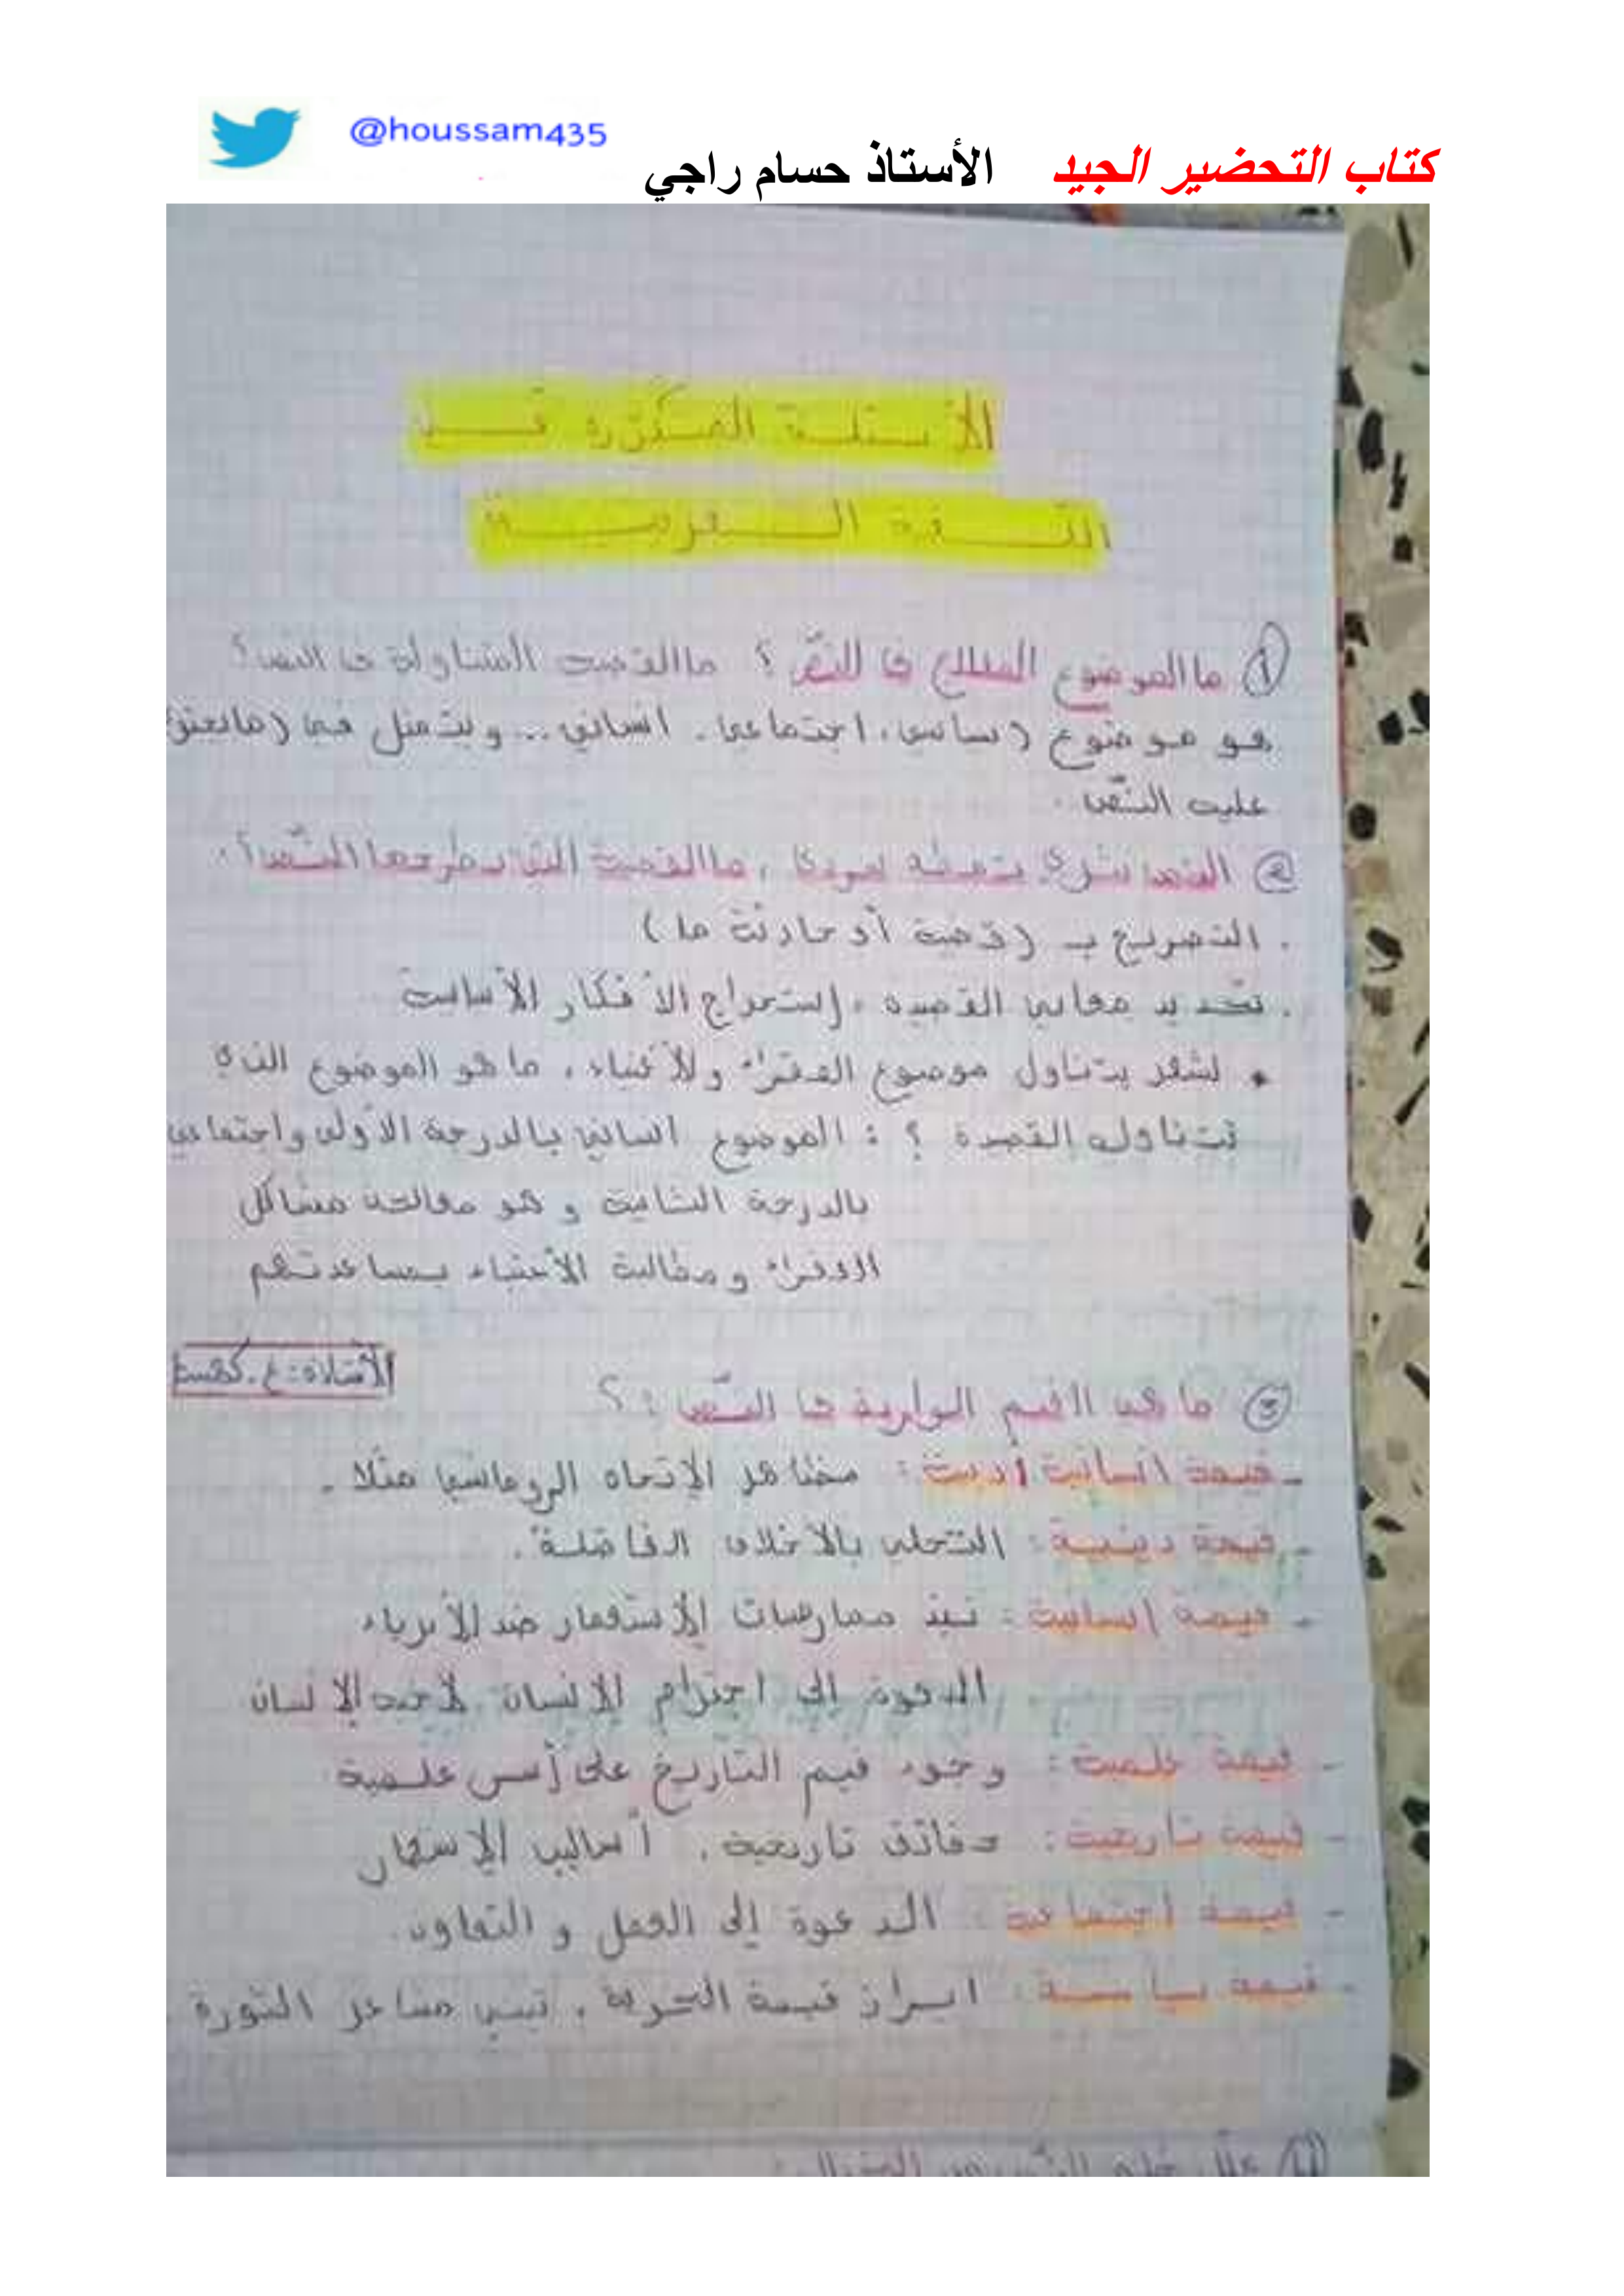 @houssam435
كتاب التحضير الجيد الأستاذ حسام راجي
الأسئلة المتكررة في
اللغة العربية
① ما الموضوع المعالج في النص؟ ما القضية المتناولة في النص؟
هو موضوع (سياسي، اجتماعي، انساني.. ويتمثل في (ما يحتوي
عليه النص.
② النص نثري ، ما القضية التي يطرحها النص؟
. التصريح بـ (قضية أو حادثة ما)
. تحديد معاني القصيدة ، إستخراج الأفكار الأساسية
• لشعر يتناول موضوع الفقراء والأغنياء ، ما هو الموضوع الذي
تتناوله القصيدة ؟ : الموضوع انساني بالدرجة الأولى واجتماعي
بالدرجة الثانية و هو معالجة مشاكل
الفقراء ومطالبة الأغنياء بمساعدتهم
الأستاذة: ع.
③ ما هي القيم الواردة في النص : ؟
- قيمة انسانية أدبية : مظاهر الإتجاه الرومانسي مثلا .
- قيمة دينية : التحلي بالأخلاق الفاضلة .
- قيمة إنسانية : نبذ ممارسات الإستعمار ضد الأبرياء
. الدعوة إلى احترام الإنسان لأخيه الإنسان
- قيمة علمية : وجود قيم التاريخ على أسس علمية
- قيمة تاريخية : حقائق تاريخية ، أساليب الإستعمار
- قيمة اجتماعية : الدعوة إلى العمل و التعاون .
- قيمة سياسية : ابراز قيمة الحرية ، تبني مشاعر الثورة .